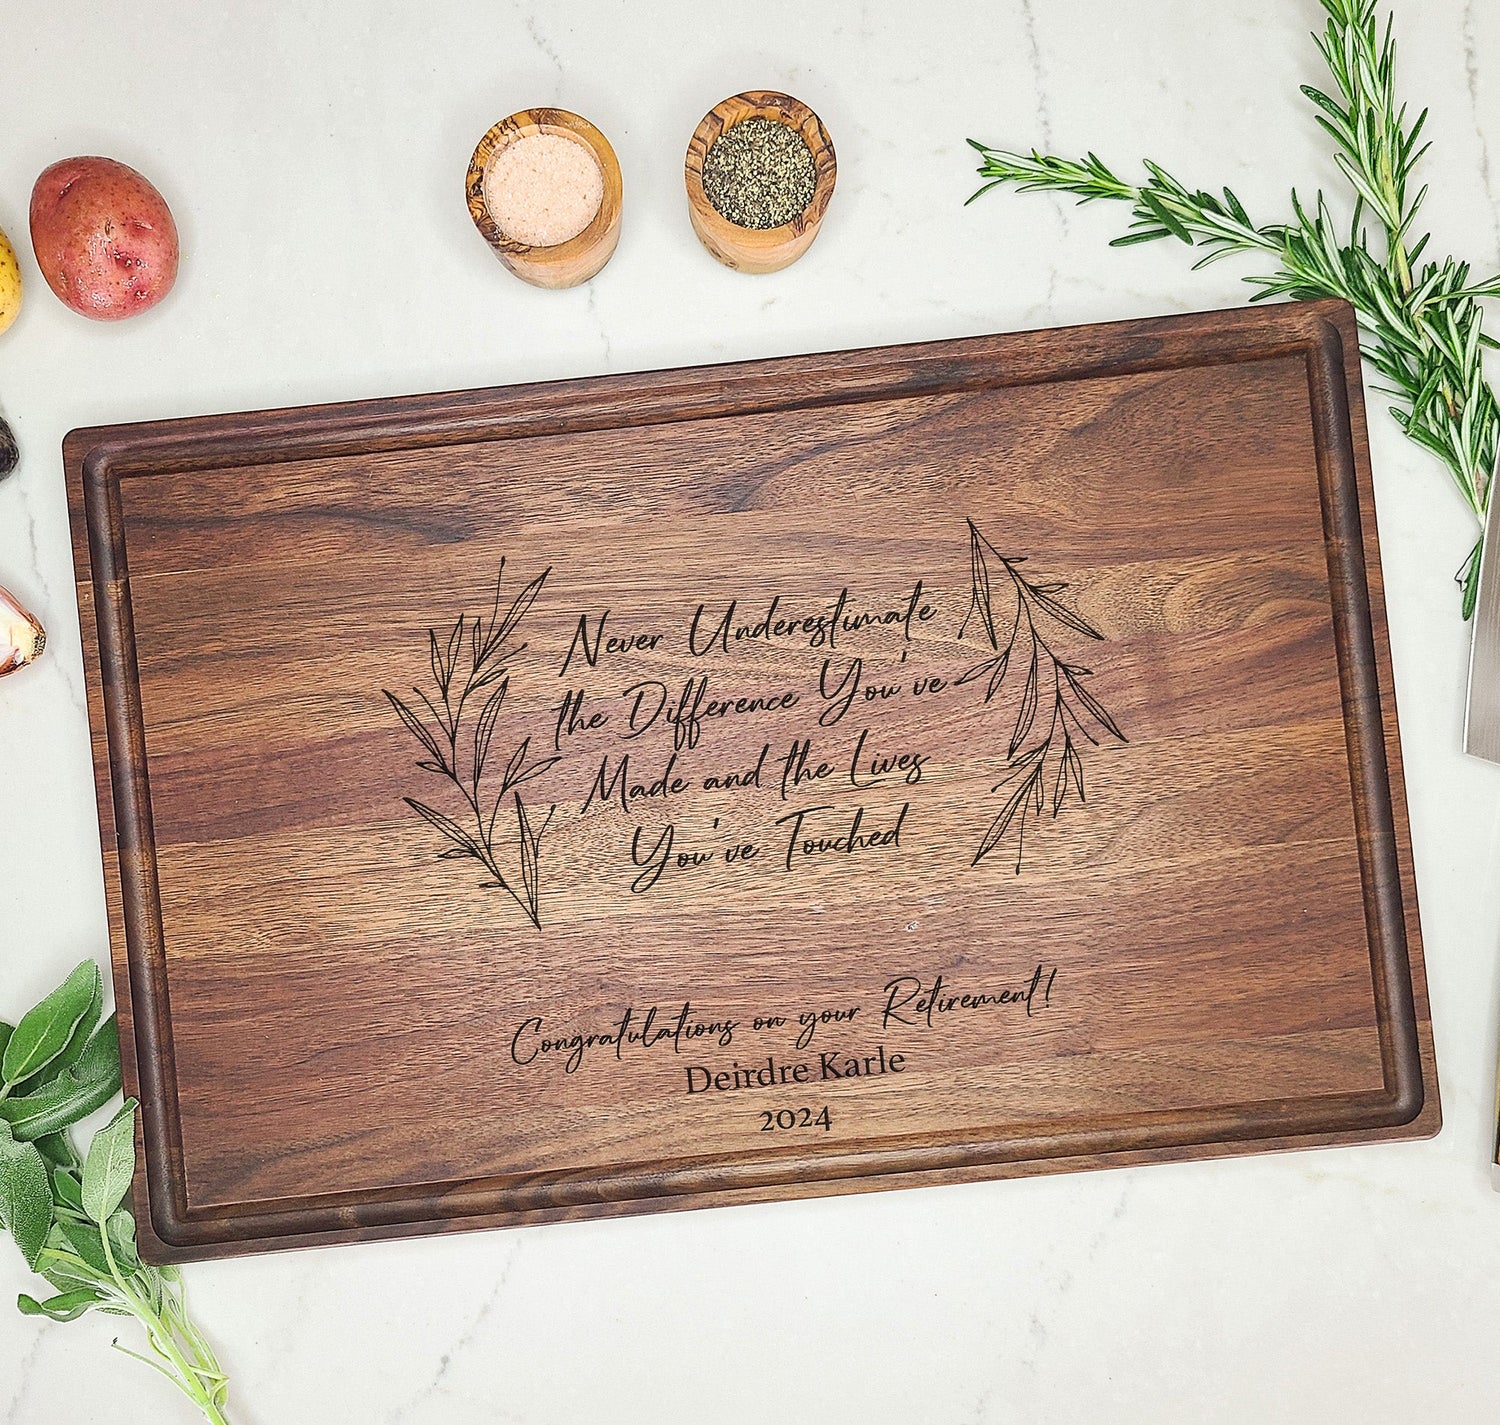 Never Underestimate
the Difference You've
Made and the Lives
You've Touched
Congratulations on your Retirement!
Deirdre Karle
2024